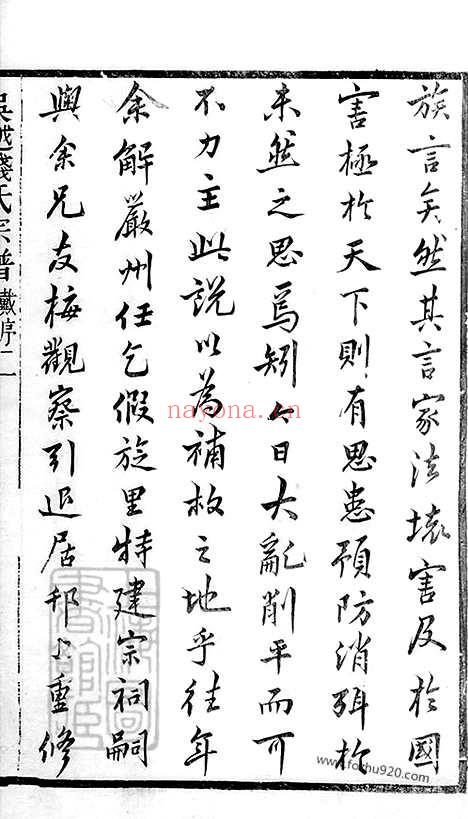 族言矣然其言家法壞害及於國
害極於天下則有思患預防消弭於
未然之思焉矧今日大亂削平而可
不力主此說以為補救之地乎往年
余解嚴州任乞假旋里特建宗祠嗣
與余兄友梅觀察引退居邗上重修
吳越錢氏宗譜 戴序 二
nayona.cn
www.fozhu920.com